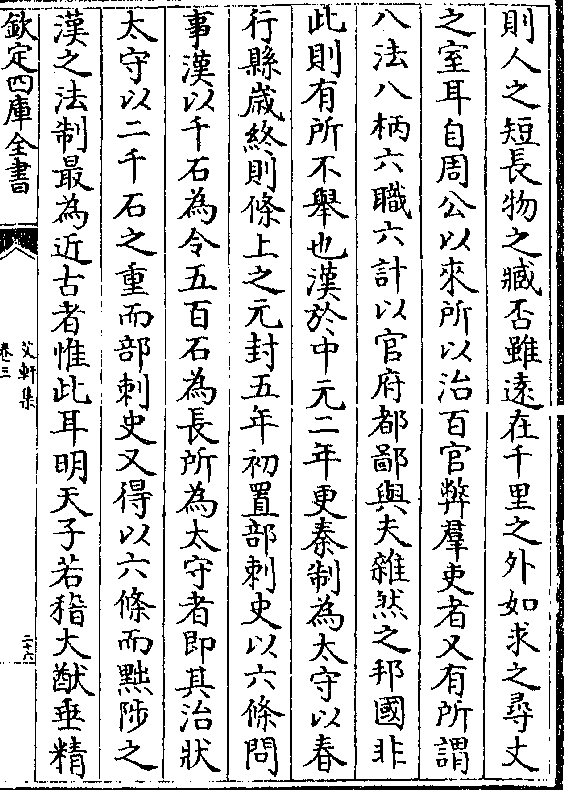 則人之短長物之臧否雖逺在千里之外如求之尋丈
之室耳自周公以來所以治百官弊羣吏者又有所謂
八法八柄六職六計以官府都鄙與夫雜然之邦國非
此則有所不舉也漢於中元二年更秦制為太守以春
行縣嵗終則條上之元封五年初置部刺史以六條問
事漢以千石為令五百石為長所為太守者即其治狀
太守以二千石之重而部刺史又得以六條而黜陟之
漢之法制最為近古者惟此耳明天子若稽大猷垂精
欽定四庫全書
艾軒集
卷三
二十六